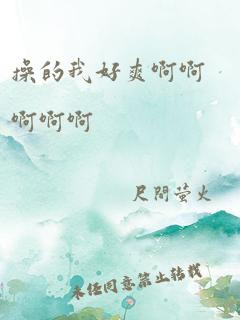 操的我好爽啊啊
啊啊啊
尺間萤火
未经同意禁止转载